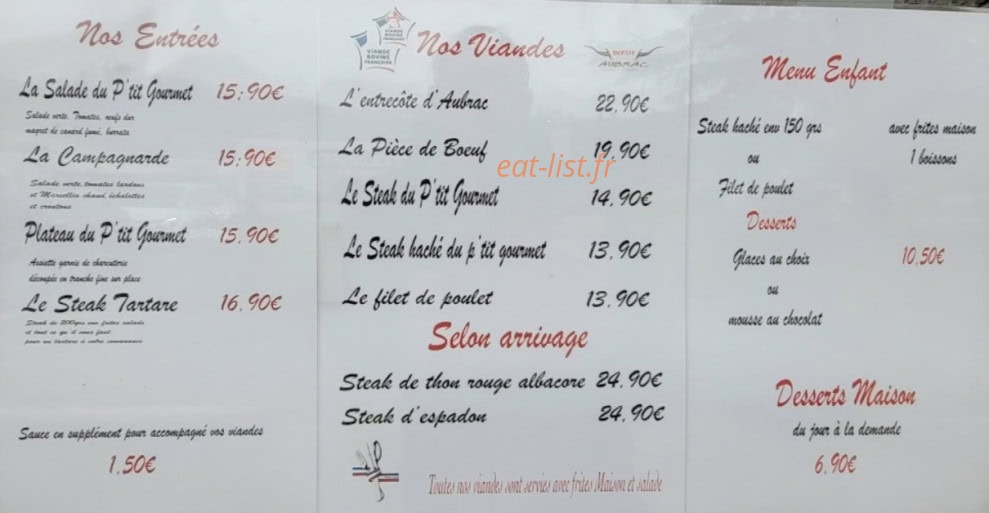 Nos Entrées
La Salade du P'tit Gourmet 15,90€
Salade verte, Tomates, oeufs dur
magret de canard fumé, burrata
La Campagnarde 15,90€
Salade verte, tomates lardons
et Marcellin chaud, échalottes
et croutons
Plateau du P'tit Gourmet 15.90€
Assiette garnie de charcuterie
découpée en tranche fine sur place
Le Steak Tartare 16,90€
Steak de 200grs frites salade
et tout ce qu'il vous faut
pour un tartare à votre convenance
Sauce en supplément pour accompagné vos viandes
1,50€
VIANDE
BOVINE
FRANÇAISE
VIANDE
BOVINE
FRANÇAISE
Nos Viandes
BOEUF
AUBRAC
L'entrecôte d'Aubrac 22,90€
La Pièce de Boeuf 19,90€
eat-list.fr
Le Steak du P'tit Gourmet 14,90€
Le Steak haché du p'tit gourmet 13,90€
Le filet de poulet 13,90€
Selon arrivage
Steak de thon rouge albacore 24,90€
Steak d'espadon 24,90€
Toutes nos viandes sont servies avec frites Maison et salade
Menu Enfant
Steak haché env 150 grs avec frites maison
ou 1 boissons
Filet de poulet
Desserts
Glaces au choix 10,50€
ou
mousse au chocolat
Desserts Maison
du jour à la demande
6,90€